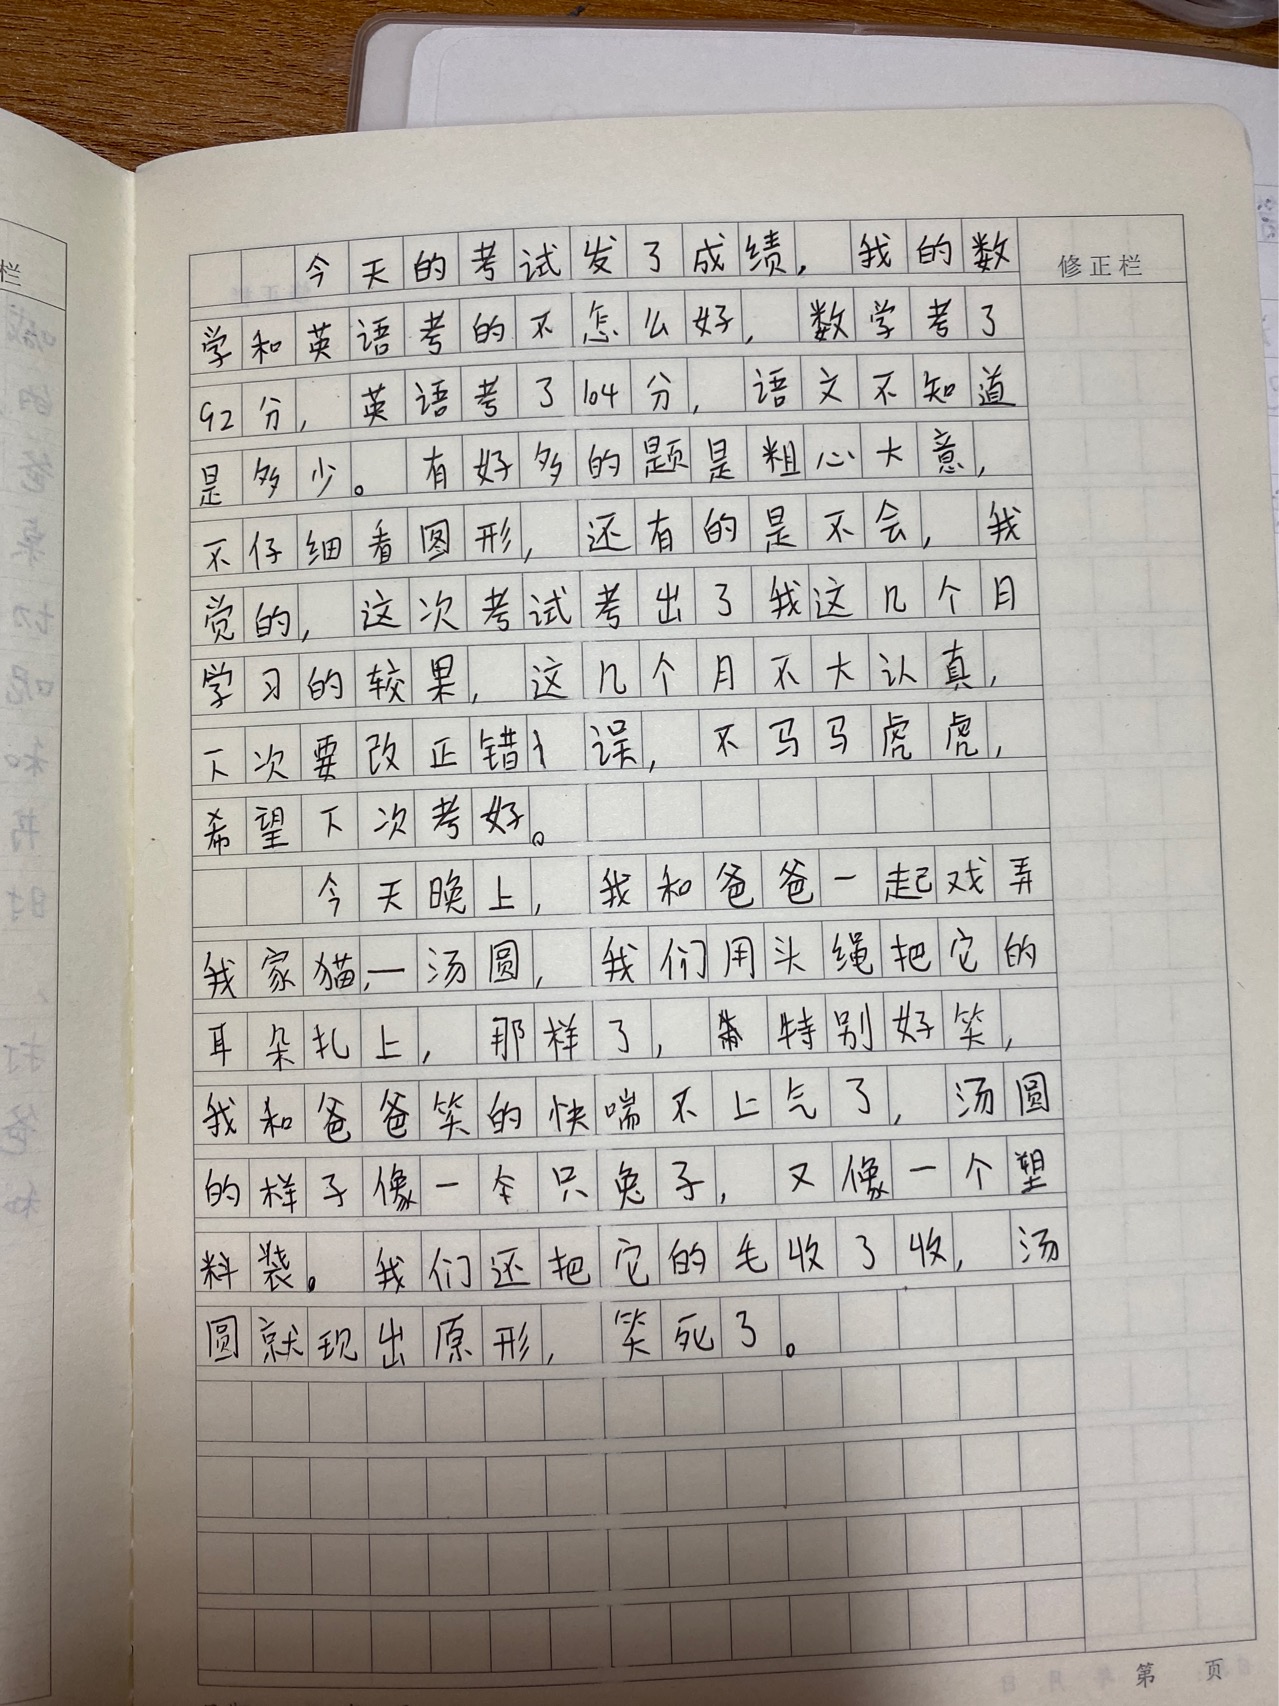 今天的考试发了成绩，我的数
修正栏
学和英语考的不怎么好，数学考了
92分，英语考了104分，语文不知道
是多少。有好多的题是粗心大意，
不仔细看图形，还有的是不会，我
觉的，这次考试考出了我这几个月
学习的较果，这几个月不大认真，
下次要改正错误，不马马虎虎，
希望下次考好。
今天晚上，我和爸爸一起戏弄
我家猫，—汤圆，我们用头绳把它的
耳朵扎上，那样了，特别好笑，
我和爸爸笑的快喘不上气了，汤圆
的样子像一只兔子，又像一个塑
料装。我们还把它的毛收了收，汤
圆就现出原形，笑死了。
第 页
栏